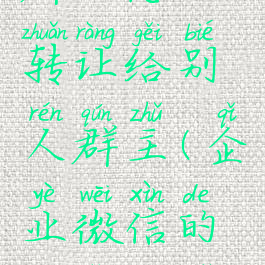 zhuǎn ràng gěi bié
转让给别
rén qún zhǔ qǐ
人群主(企
yè wēi xìn de
业微信的